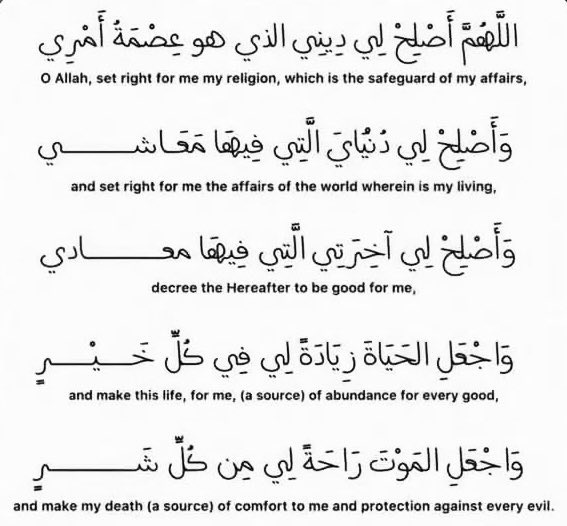 اللَّهُمَّ أَصْلِحْ لِي دِينِي الذي هو عِصْمَةُ أَمْرِي
O Allah, set right for me my religion, which is the safeguard of my affairs,
وَأَصْلِحْ لِي دُنْيَايَ الَّتِي فِيهَا مَعَـاشـــــــي
and set right for me the affairs of the world wherein is my living,
وَأَصْلِحْ لِي آخِرَتِي الَّتِي فِيهَا معـــــــادي
decree the Hereafter to be good for me,
وَاجْعَلِ الحَيَاةَ زِيَادَةً لِي فِي كُلِّ خَـــيْـــرٍ
and make this life, for me, (a source) of abundance for every good,
وَاجْعَلِ المَوْتَ رَاحَةً لِي مِن كُلِّ شَـــــــرٍ
and make my death (a source) of comfort to me and protection against every evil.